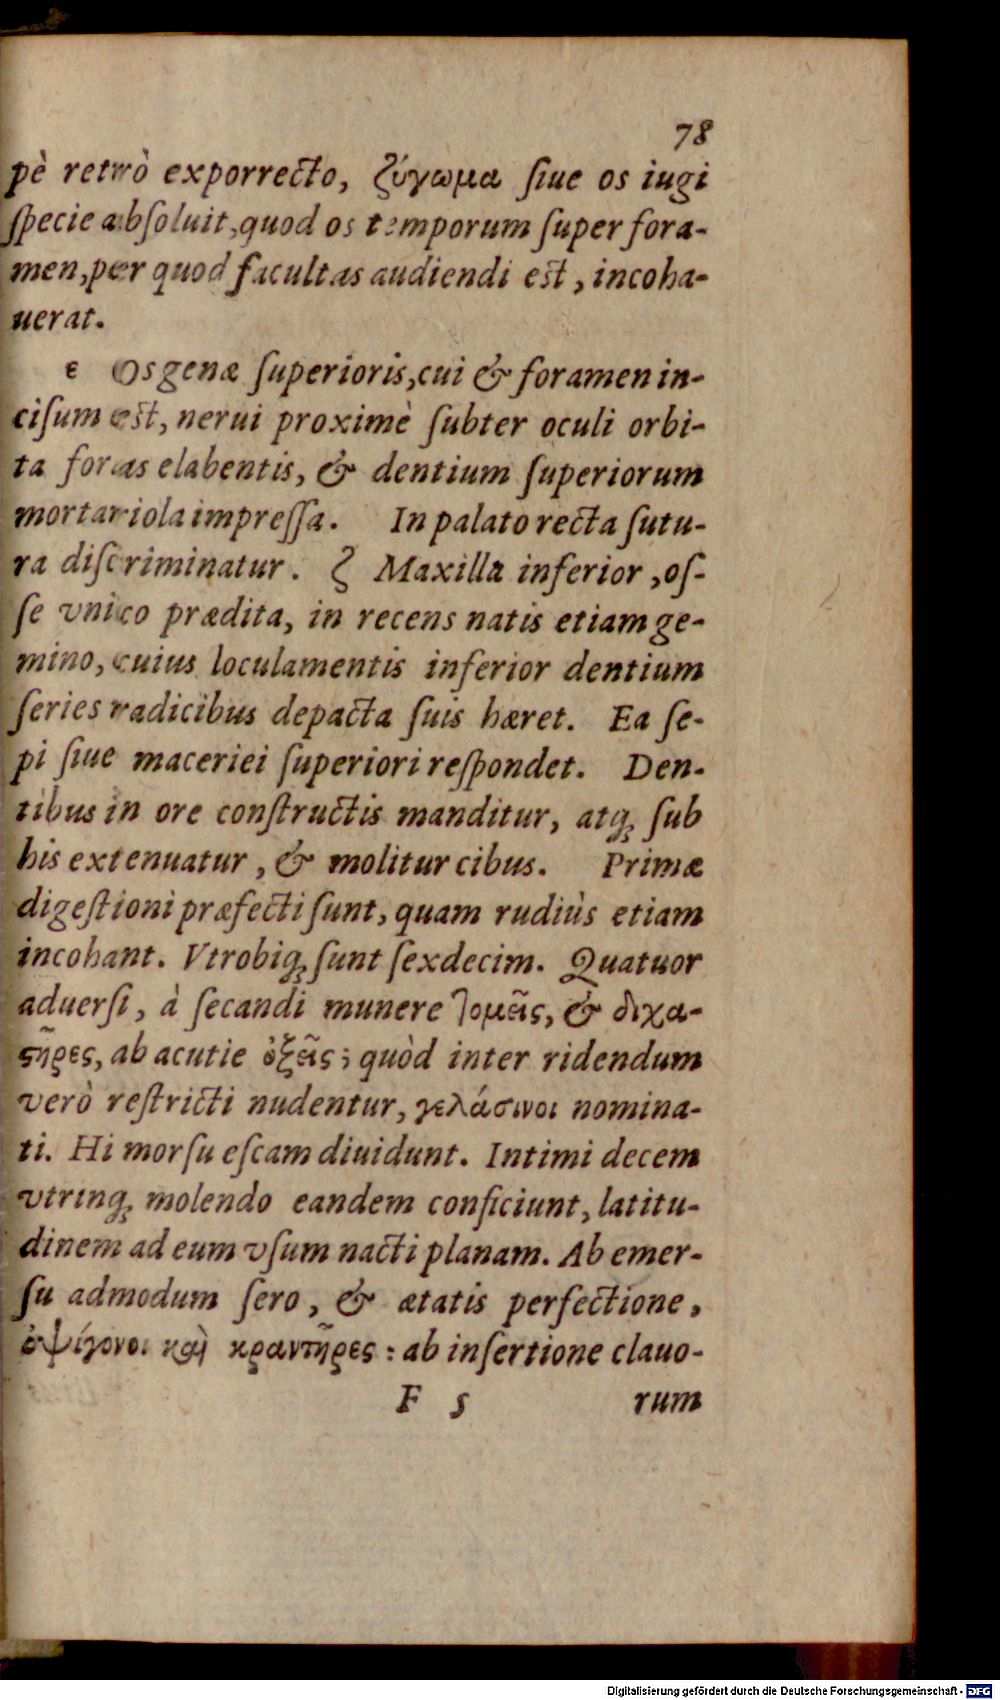 78
pè retrò exporrecto, ζύγωμα ſiue os iugi
ſpecie abſoluit, quod os temporum ſuper fora-
men, per quod facultas audiendi est, incoha-
uerat.
ε Os genæ ſuperioris, cui & foramen in-
ciſum est, nerui proximè ſubter oculi orbi-
ta foras elabentis, & dentium ſuperiorum
mortariola impreſſa. In palato recta ſutu-
ra diſcriminatur. ζ Maxilla inferior, oſ-
ſe vnico prædita, in recens natis etiam ge-
mino, cuius loculamentis inferior dentium
ſeries radicibus depacta ſuis hæret. Ea ſe-
pi ſiue maceriei ſuperiori reſpondet. Den-
tibus in ore conſtructis manditur, atq; ſub
his extenuatur, & molitur cibus. Primæ
digeſtioni præfecti ſunt, quam rudiùs etiam
incohant. Vtrobiq; ſunt ſexdecim. Quatuor
aduerſi, à ſecandi munere τομεῖς, & διχα-
ςῆρες, ab acutie ὀξεῖς; quòd inter ridendum
verò reſtricti nudentur, γελάσινοι nomina-
ti. Hi morſu eſcam diuidunt. Intimi decem
vtrinq; molendo eandem conficiunt, latitu-
dinem ad eum vſum nacti planam. Ab emer-
ſu admodum ſero, & ætatis perfectione,
ὀψίγονοι καὶ κραντῆρες: ab inſertione clauo-
F 5 rum
Digitalisierung gefördert durch die Deutsche Forschungsgemeinschaft - DFG